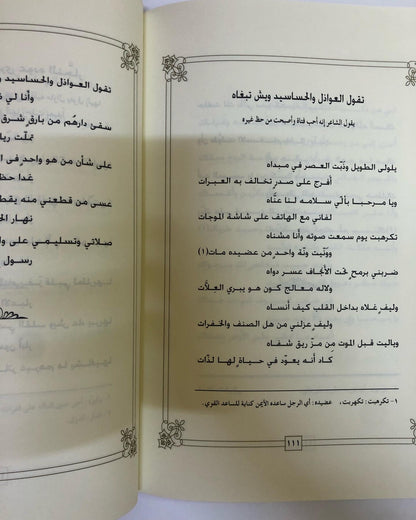 تقول العواذل والحساسيد ويش تبغاه
يقول الشاعر إنه أحب فتاة وأصبحت من حظ غيره
يلولى الطويل ونبّت العصر في مبداه
أفرج على صدرٍ تخالف به العبرات
ويا مرحبا بآلي سلامه لنا عنّاه
لفاني مع الهاتف على شاشة الموجات
تكرهبت يوم سمعت صوته وأنا مشناه
وونّيت ونّه واحدٍ من عضيده مات(١)
ضربني برمحٍ تحت الأنجاف عسر دواه
ولاله معالج كون هو يبري العِلاّت
وليفٍ غلاه بداخل القلب كيف أنساه
وليفٍ عزلني من هل الصنف والخفرات
وياليت قبل الموت من مزّ ريق شفاه
كاد أنه يعوّد في حياةٍ لها لذّات
١- تكرهبت: تكهربت، عضيده: أي الرجل ساعده الأيمن كناية للساعد القوي.
١١١
تقول العواذل والحساسيد و
وأنا لي
سقى دارهُم من بارق شرق
تملّت
على شأن من هو واحدٍ في
غدا حظ
عسى من قطعني منه يقط
نهار
صلاتي وتسليمي على وا
رسول